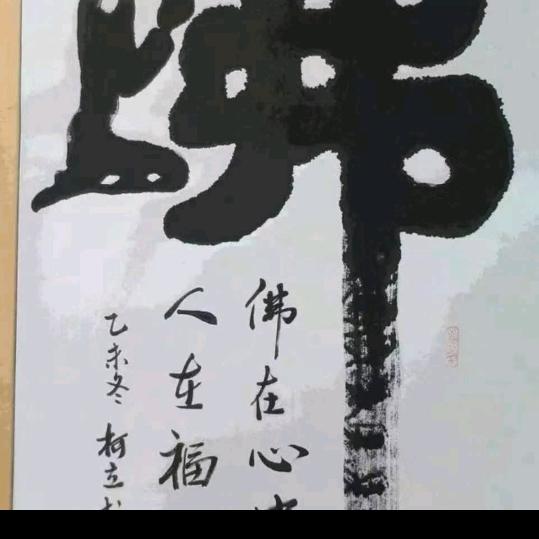 佛
佛在心
人在福
乙未冬 柯立